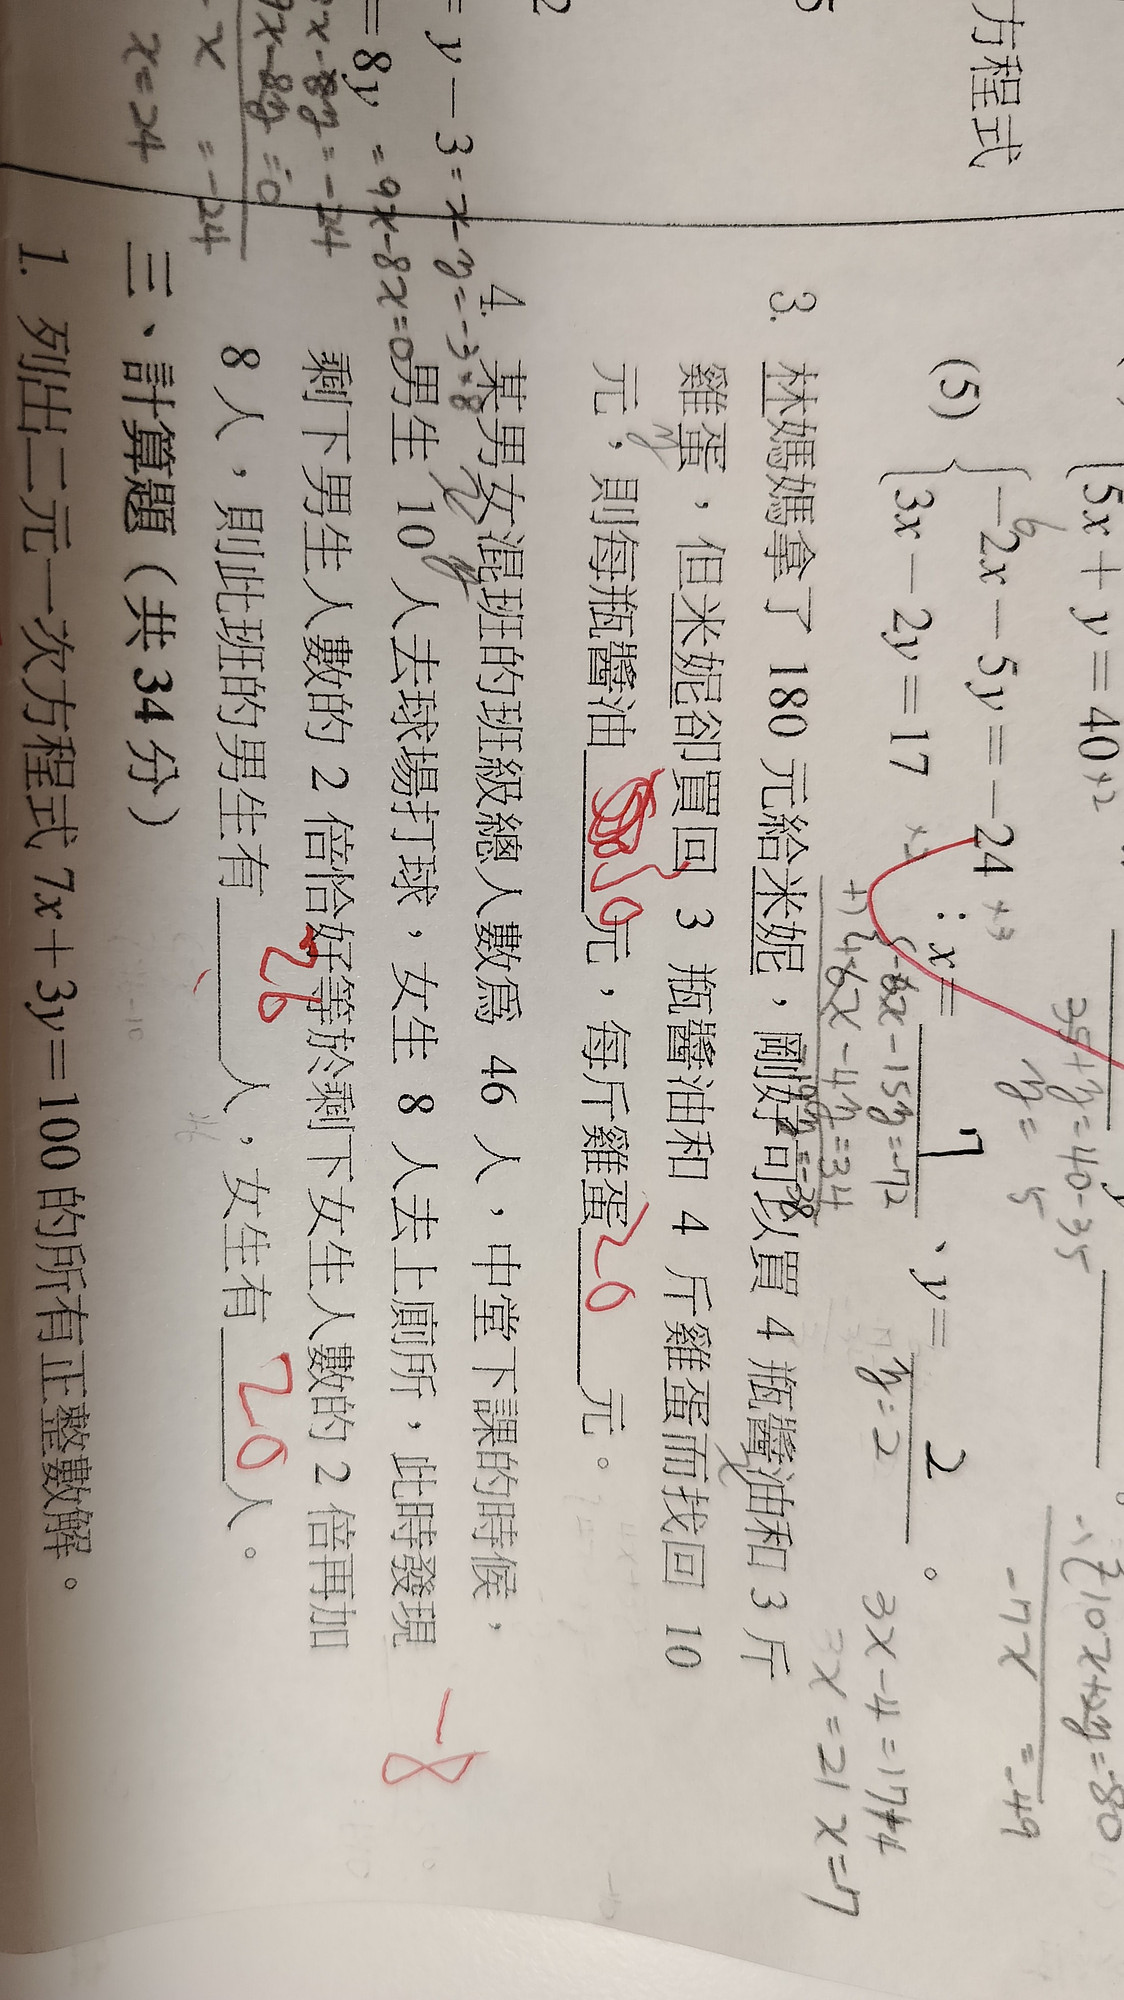 方程式
5x + y = 40 ×2
35+y=40-35
y= 5
-7x = -49
(5) { -2x - 5y = -24 ×3
3x - 2y = 17
: x = 7 、y = 2 。
-6x-15y=-72
6x-4y=34
y=2
3x-4=17+4
3x=21 x=7
3. 林媽媽拿了 180 元給米妮，剛好可以買 4 瓶醬油和 3 斤
雞蛋，但米妮卻買回 3 瓶醬油和 4 斤雞蛋而找回 10
元，則每瓶醬油 30 元，每斤雞蛋 20 元。
4. 某男女混班的班級總人數為 46 人，中堂下課的時候，
男生 10 人去球場打球，女生 8 人去上廁所，此時發現
剩下男生人數的 2 倍恰好等於剩下女生人數的 2 倍再加
8 人，則此班的男生有 26 人，女生有 20 人。
-8
= y - 3 = x-y=-3 ×8
= 8y = 9x-8x=0
x-8y=-24
9x-8y=0
-x = -24
x=24
三、計算題（共 34 分）
1. 列出二元一次方程式 7x + 3y = 100 的所有正整數解。